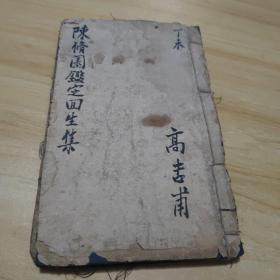 丁未
高吉甫
陳脩園鑑定回生集